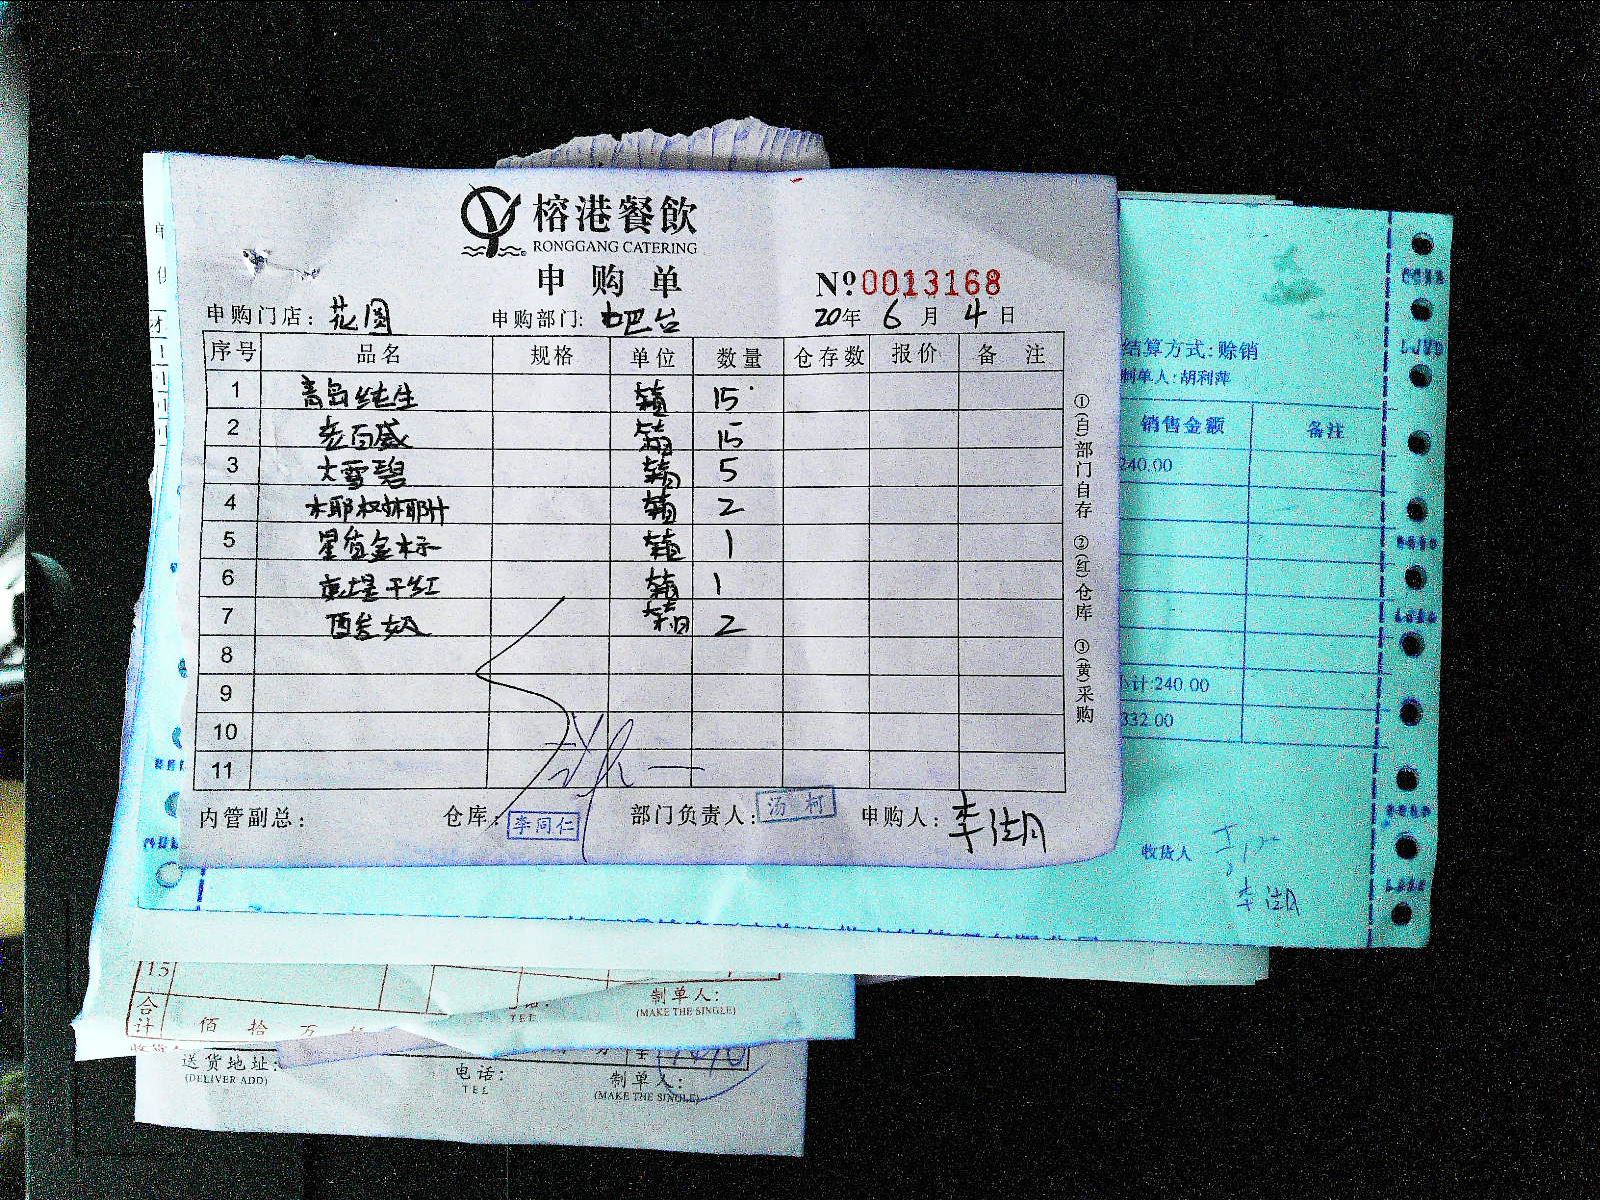 榕港餐飲
RONGGANG CATERING
申购单
№0013168
申购门店：花园 申购部门：吧台 20年 6月 4日
序号 品名 规格 单位 数量 仓存数 报价 备注
1 青岛纯生 箱 15
2 百威 箱 15
3 大雪碧 箱 5
4 箱 2
5 金标 箱 1
6 干红 箱 1
7 酸奶 箱 2
8
9
10
11
内管副总： 仓库：李同仁 部门负责人：汤柯 申购人：李湖
①(白)部门自存 ②(红)仓库 ③(黄)采购
结算方式：赊销
制单人：胡利萍
销售金额 备注
240.00
小计：240.00
332.00
收货人
李湖
15
合计 佰 拾 万
TEL
制单人：
(MAKE THE SINGLE)
送货地址：
(DELIVER ADD)
电话：
TEL
制单人：
(MAKE THE SINGLE)